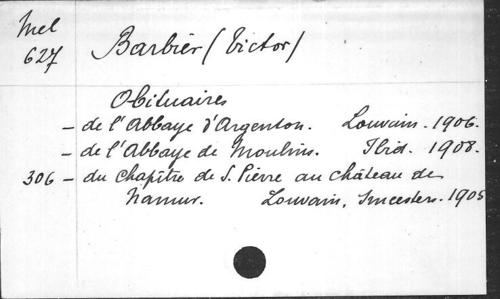 Mel
627
Barbier (Victor)
Obituaires
- de l'Abbaye d'Argenton. Louvain. 1906.
- de l'Abbaye de Moulins. Ibid. 1908.
306 - du Chapître de S. Pierre au château de
Namur. Louvain, 1905